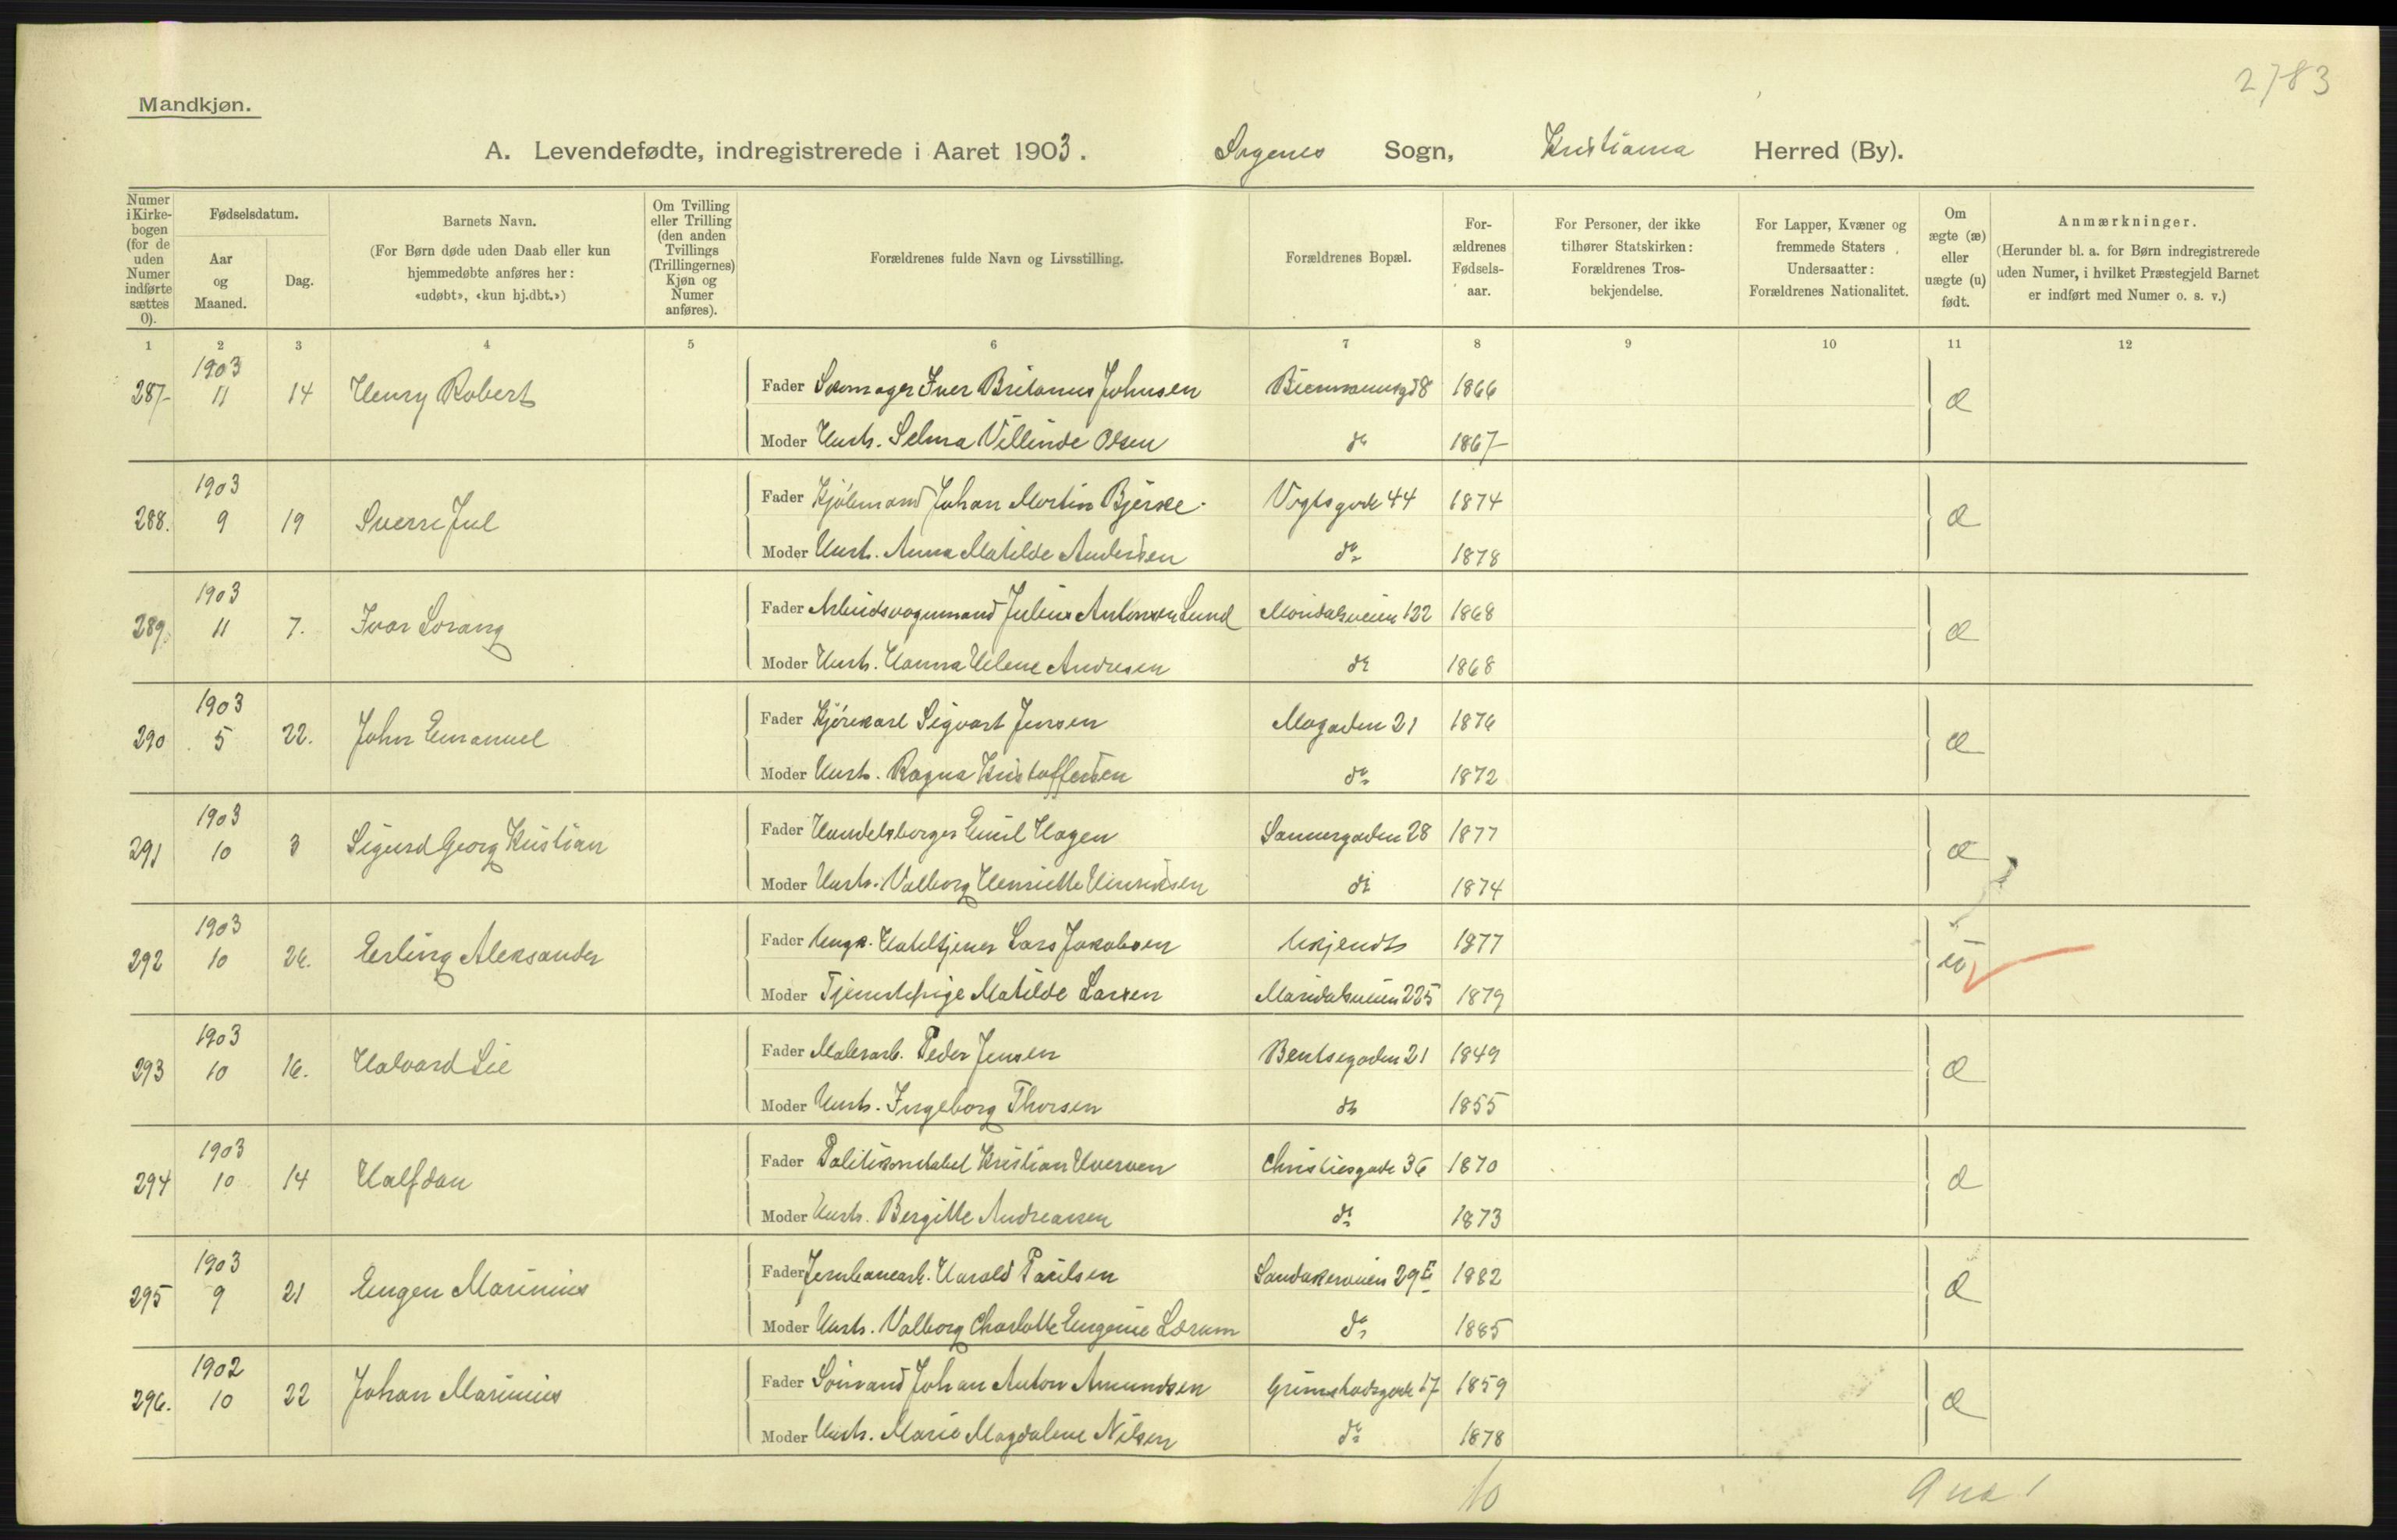 2783
Mandkjøn.
A. Levendefødte, indregistrerede i Aaret 1903. Sagenes Sogn, Kristiania Herred (By).
Numer i Kirkebogen (for de uden Numer indførte sættes 0).
Fødselsdatum.
Aar og Maaned.
Dag.
Barnets Navn.
(For Børn døde uden Daab eller kun hjemmedøbte anføres her: «udøbt», «kun hj.dbt.»)
Om Tvilling eller Trilling (den anden Tvillings (Trillingernes) Kjøn og Numer anføres).
Forældrenes fulde Navn og Livsstilling.
Forældrenes Bopæl.
Forældrenes Fødselsaar.
For Personer, der ikke tilhører Statskirken: Forældrenes Trosbekjendelse.
For Lapper, Kvæner og fremmede Staters Undersaatter: Forældrenes Nationalitet.
Om ægte (æ) eller uægte (u) født.
Anmærkninger.
(Herunder bl. a. for Børn indregistrerede uden Numer, i hvilket Præstegjeld Barnet er indført med Numer o. s. v.)
1 2 3 4 5 6 7 8 9 10 11 12
287 1903 11 14 Henry Robert Fader Skomager Iver Britanus Johnsen Biermannsgd 8 1866 æ
Moder Hustr. Selma Villinde Olsen do 1867
288. 1903 9 19 Sverre Jul Fader Kjølemand Johan Martin Bjerke Vogtsgade 44 1874 æ
Moder Hustr. Anna Matilde Andersen do 1878
289. 1903 11 7. Ivar Sorang Fader Arbeidsvognmand Julius Antonsen Lund Maridalsveien 122 1868 æ
Moder Hustr. Hanna Helene Andresen do 1868
290 1903 5 22. John Emanuel Fader Kjørekarl Sigvart Jensen Mogaden 21 1876 æ
Moder Hustr. Ragna Kristoffersen do 1872
291 1903 10 3 Sigurd Georg Kristian Fader Handelsborger Emil Hagen Sannergaden 28 1877 æ
Moder Hustr. Valborg Henriette Hinriksen do 1874
292 1903 10 26. Erling Aleksander Fader Ungk. Hoteltjener Lars Jakobsen Ukjendt 1877 u
Moder Tjenestepige Matilde Larsen Maridalsveien 225 1879
293 1903 10 16. Halvard Lie Fader Malerarb. Peder Jensen Bentsegaden 21 1849 æ
Moder Hustr. Ingeborg Thorsen do 1855
294 1903 10 14 Halfdan Fader Politikonstabel Kristian Hverven Christiesgade 36 1870 æ
Moder Hustr. Bergitte Andreassen do 1873
295 1903 9 21 Eugen Marinius Fader Jernbanearb. Harald Paulsen Sandakerveien 29 E 1882 æ
Moder Hustr. Valborg Charlotte Eugenie Lørum do 1885
296. 1902 10 22 Johan Marinius Fader Sømand Johan Anton Amundsen Grimstadsgade 17 1859 æ
Moder Hustr. Marie Magdalene Nilsen do 1878
10